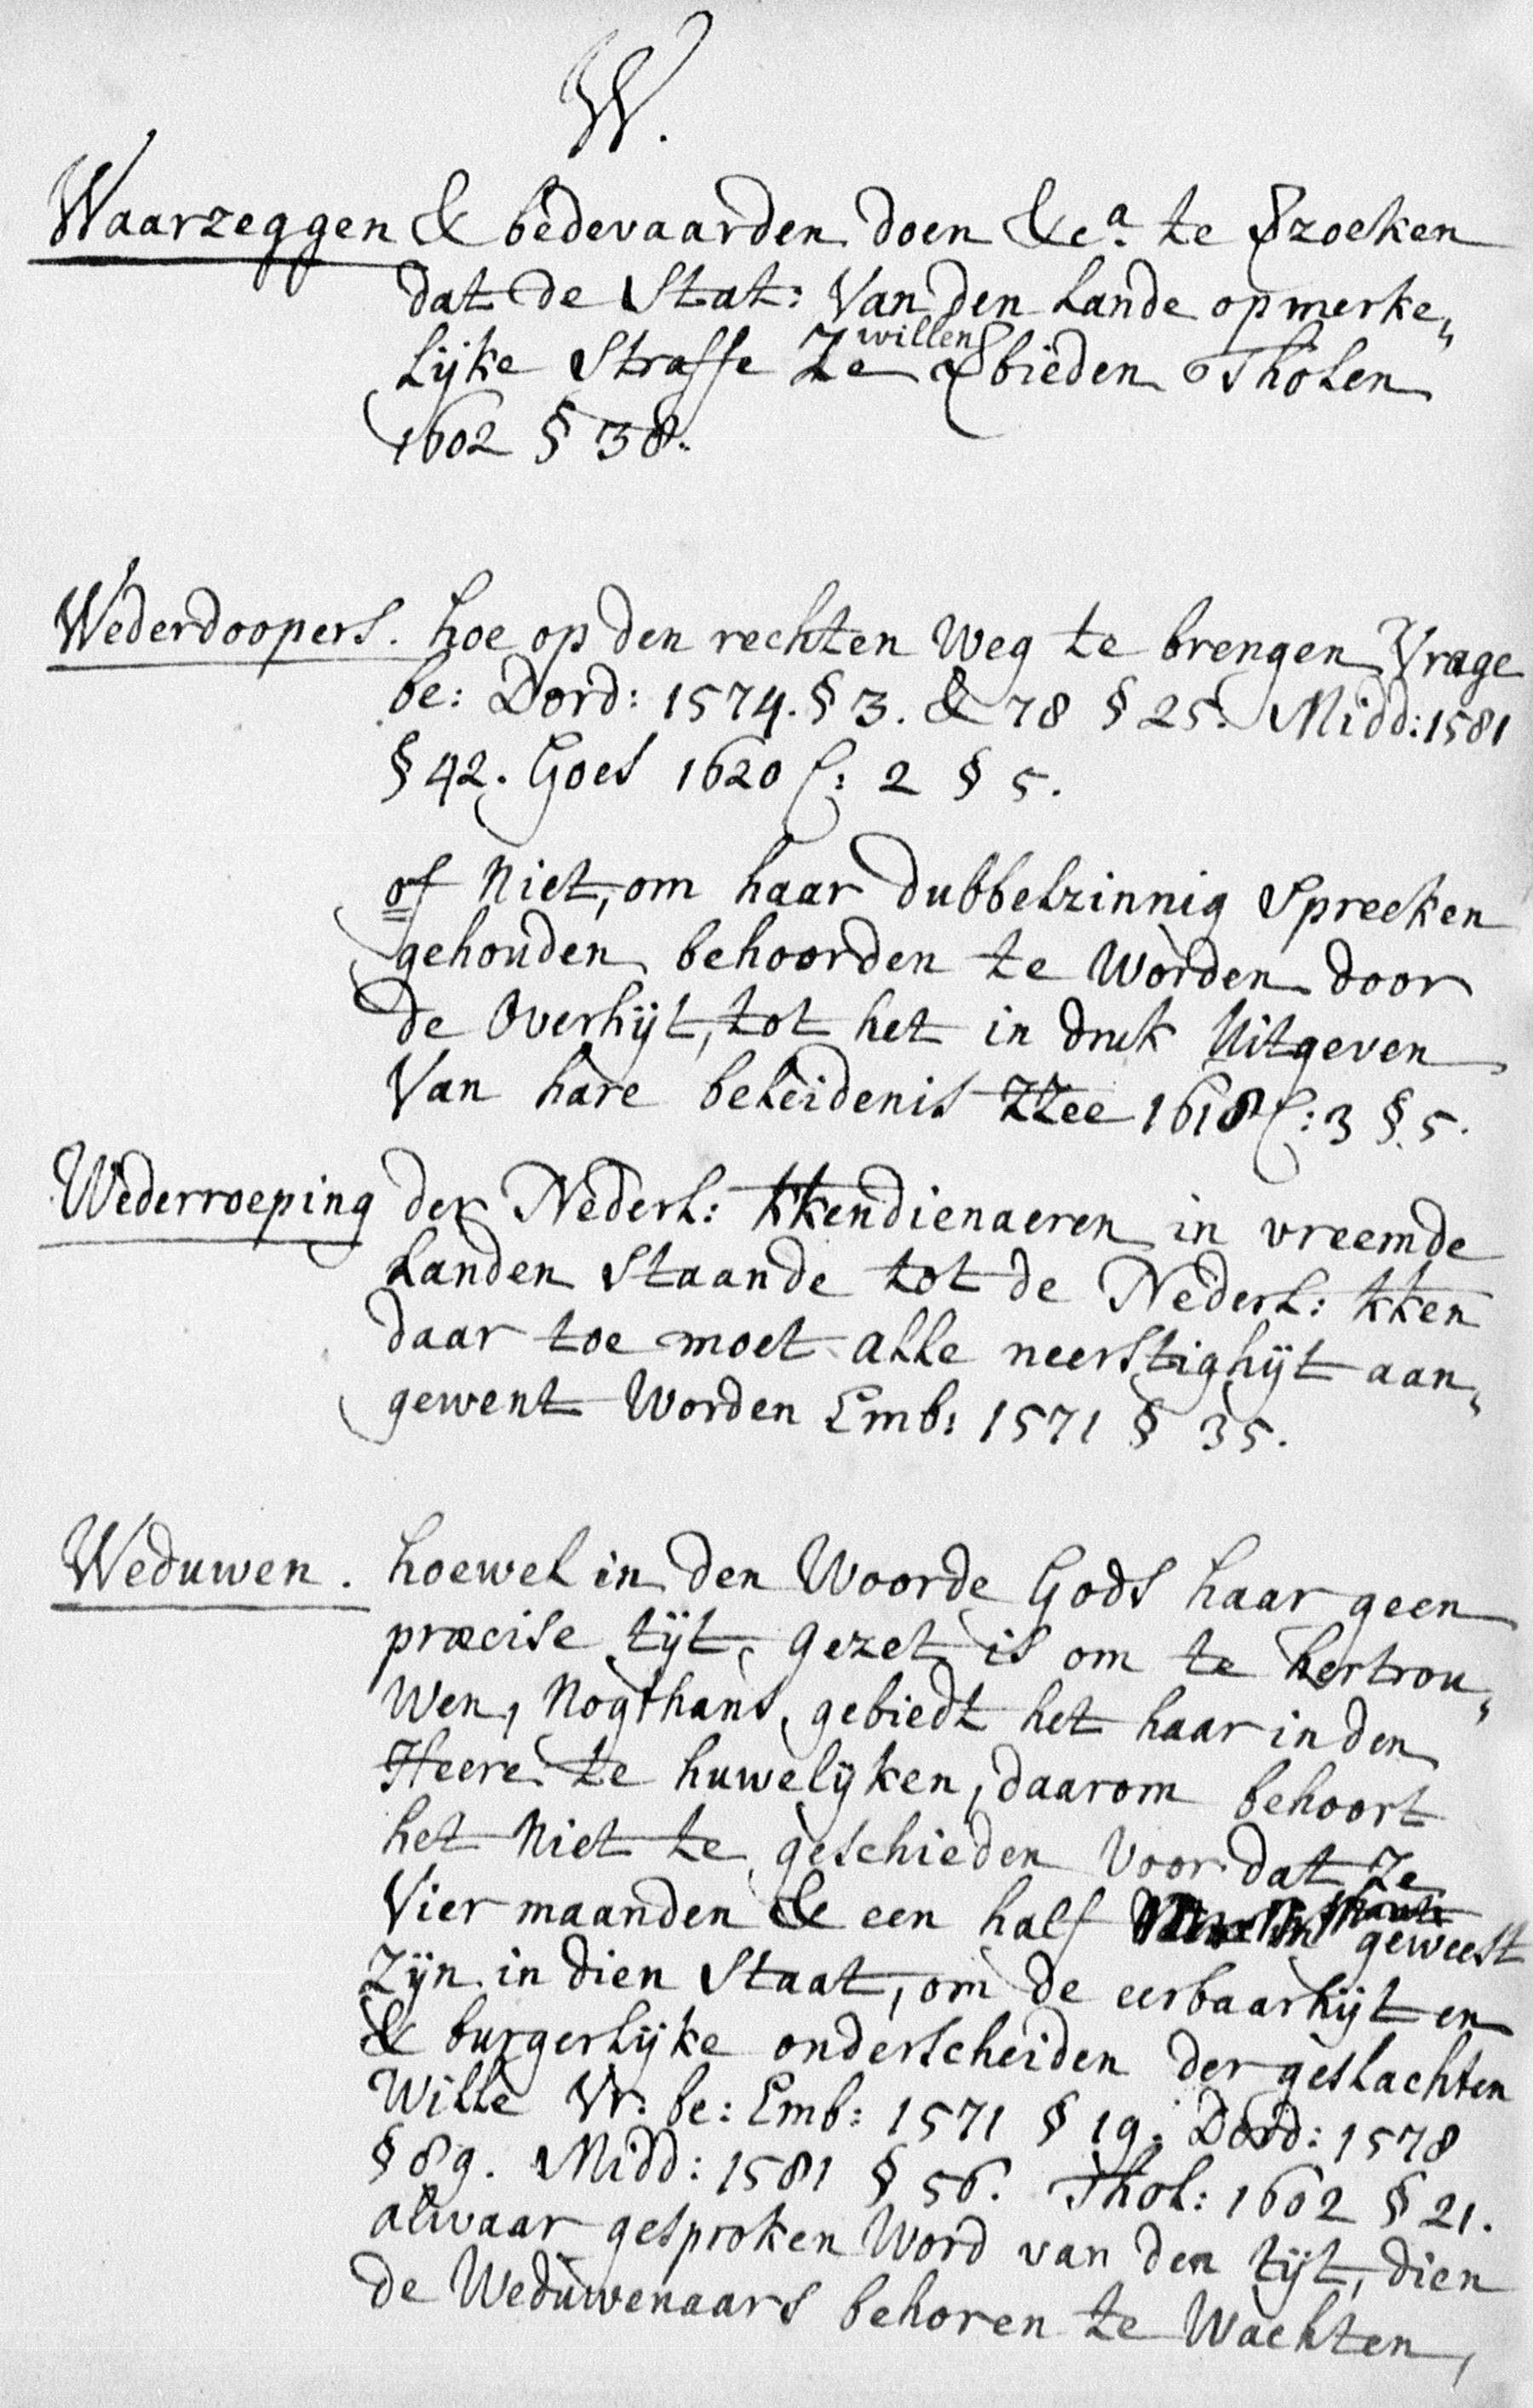 W.
Waarzeggen & bedevaarden doen &cª. te ꝟzoeken
dat de Stat: Van den Lande opmerke„
Lijke Straffe Ze willen ꝟbieden Tholen
1602 § 38.
Wederdoopers. hoe op den rechten Weg te brengen Vrage
be: Dord: 1574. § 3. & 78 § 25. Midd: 1581
§ 42. Goes 1620 S: 2 § 5.
of Niet, om haar dubbelzinnig Spreeken
gehouden behoorden te Worden door
de Overhijt, tot het in druk Uitgeven
Van hare beleidenis ZZee 1618 S: 3 § 5.
Wederroeping der Nederl: kkendienaeren in vreemde
Landen Staande tot de Nederl: kken
daar toe moet alle neerstighijt aan„
gewent Worden Emb: 1571 § 35.
Weduwen. hoewel in den Woorde Gods haar geen
præcise tijt gezet is om te hertrou„
Wen, Nogthans gebiedt het haar in den
Heere te huwelijken, daarom behoort
het Niet te geschieden Voor dat Ze
Vier maanden & een half geweest
Zijn in dien Staat, om de eerbaarhijt en
& burgerlijke onderscheiden der geslachten
Wille Vr: be: Emb: 1571 § 19. Dord: 1578
§ 89. Midd: 1581 § 56. Thol: 1602 § 21.
alwaar gesproken Word van den tijt, dien
de Weduwenaars behoren te Wachten,